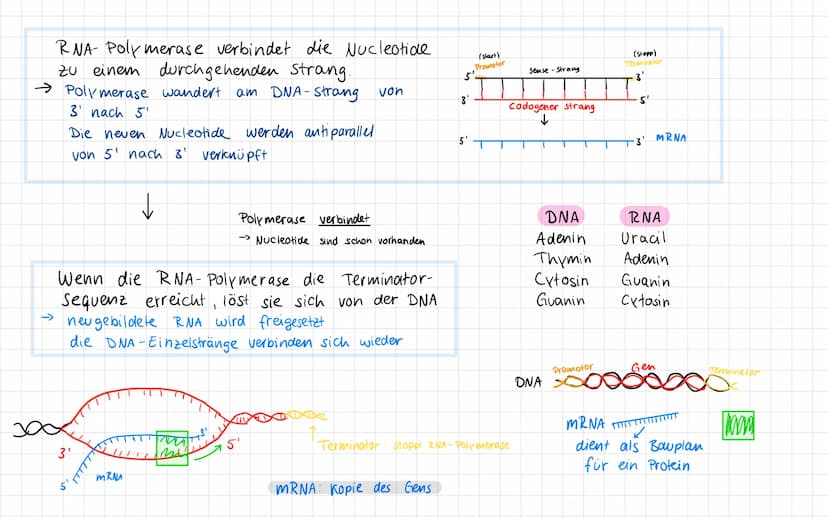 RNA-Polymerase verbindet die Nucleotide
zu einem durchgehenden Strang.
→ Polymerase wandert am DNA-Strang von
3' nach 5'
Die neuen Nucleotide werden antiparallel
von 5' nach 3' verknüpft
(Start)
Promotor
(Stopp)
Terminator
5' Sense-Strang 3'
3' 5'
Codogener Strang
5' 3' mRNA
Polymerase verbindet
→ Nucleotide sind schon vorhanden
DNA RNA
Adenin Uracil
Thymin Adenin
Cytosin Guanin
Guanin Cytosin
Wenn die RNA-Polymerase die Terminator-
Sequenz erreicht, löst sie sich von der DNA
→ neugebildete RNA wird freigesetzt
die DNA-Einzelstränge verbinden sich wieder
Promotor Gen Terminator
DNA
mRNA
dient als Bauplan
für ein Protein
3' 3' 5'
5' mRNA
Terminator: stoppt RNA-Polymerase
mRNA: Kopie des Gens